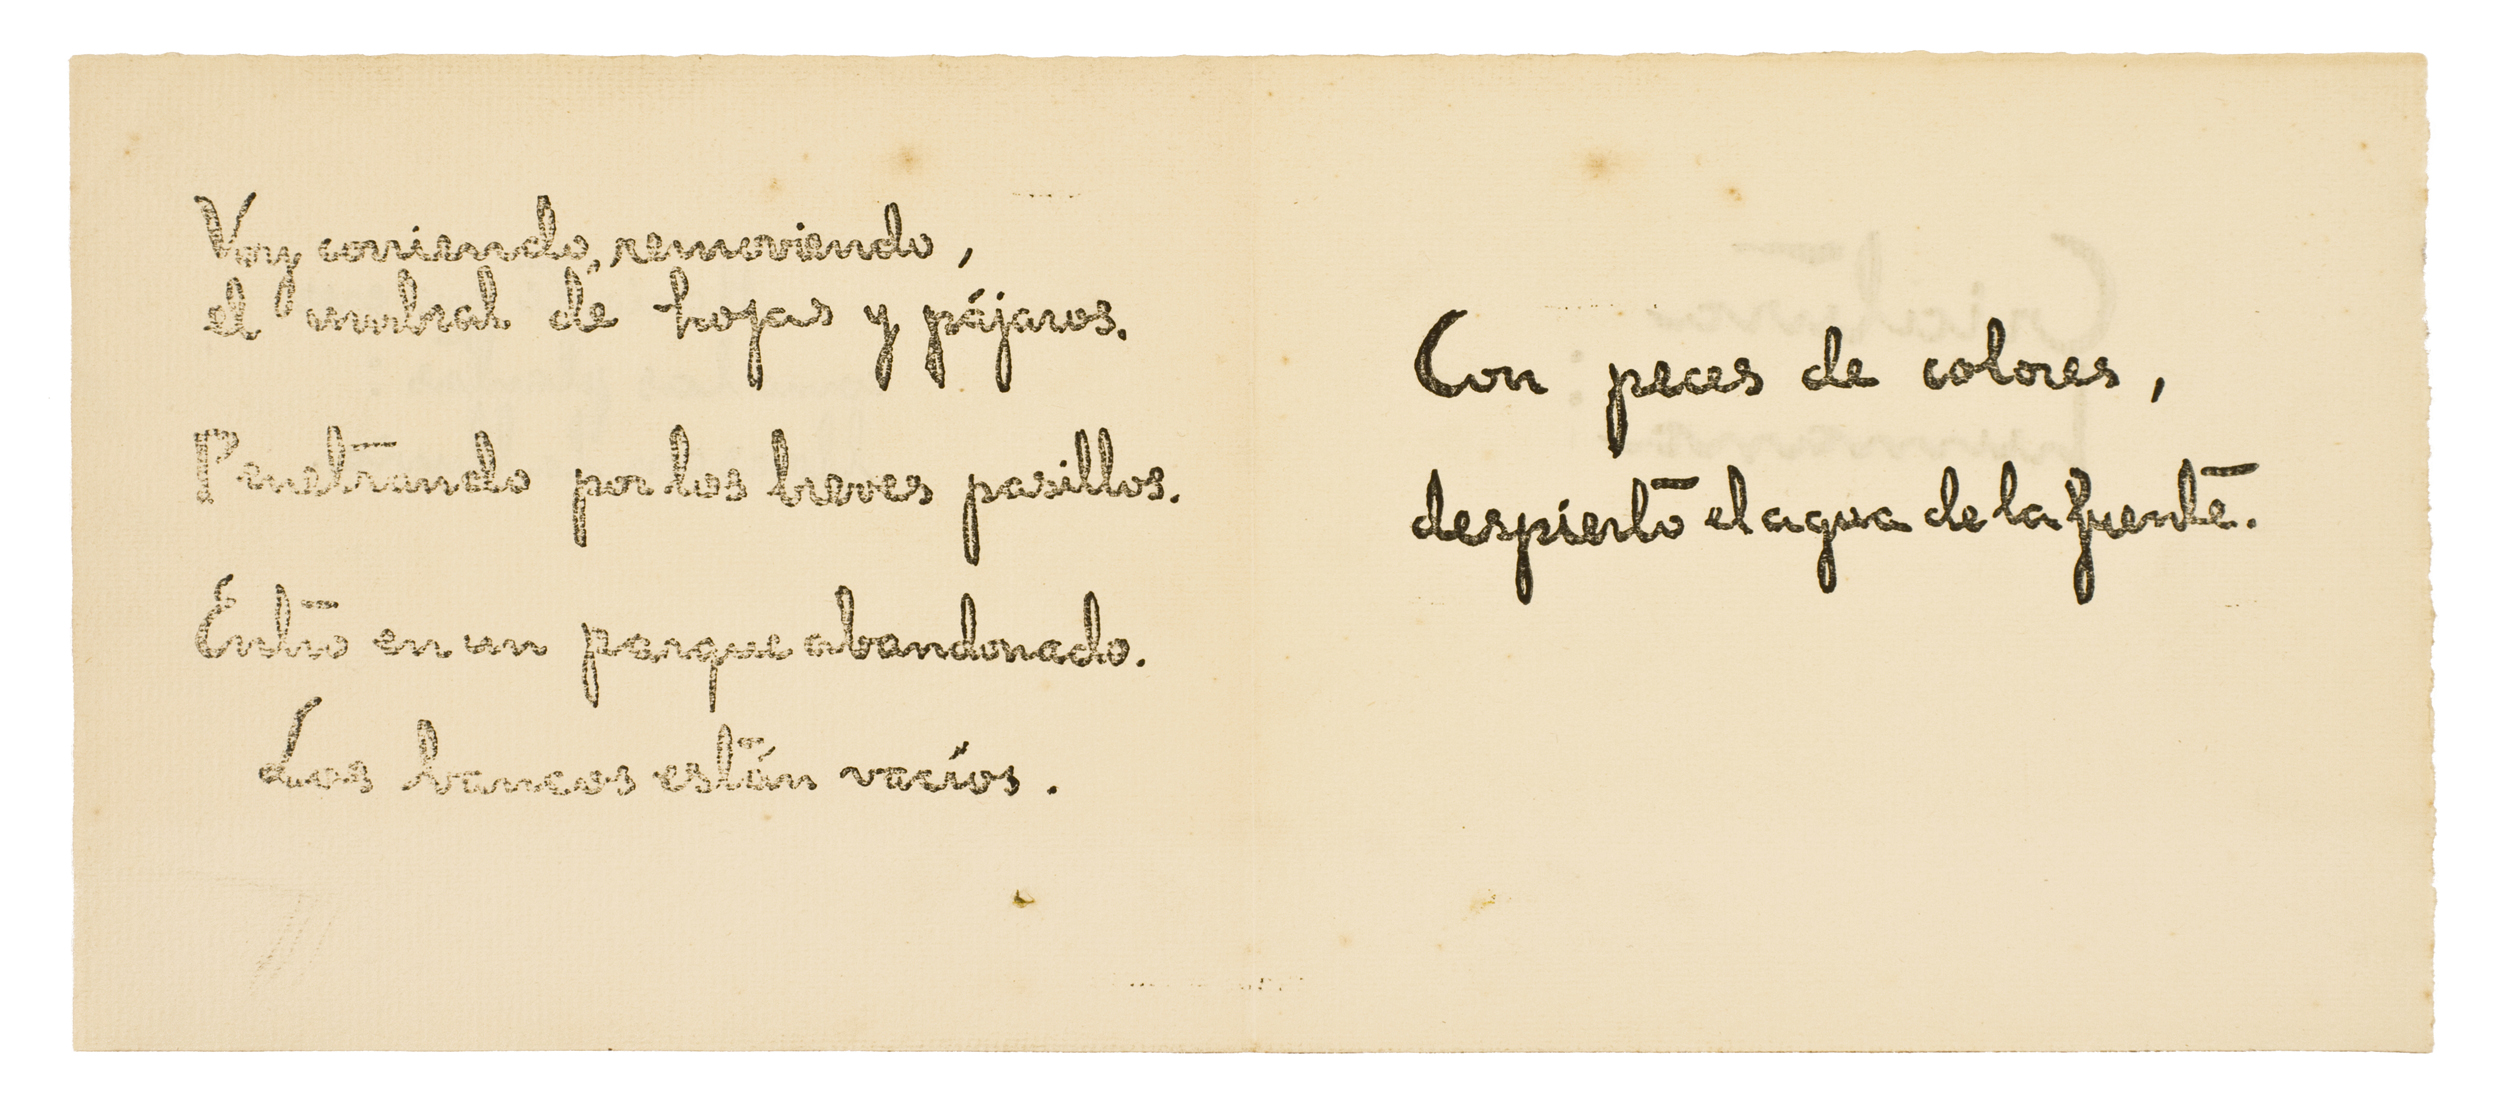 Voy corriendo, removiendo,
el umbral de hojas y pájaros.
Penetrando por los breves pasillos.
Entro en un parque abandonado.
Los bancos están vacíos.
Con peces de colores,
despierto el agua de la fuente.